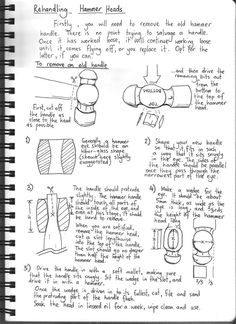 Rehandling Hammer Heads
Firstly, you will need to remove the old hammer
handle. There is no point trying to salvage a handle.
Once it has worked loose, it will continue working loose
until it comes flying off, or you replace it. Opt for the
latter, if you can.
To remove an old handle
First, cut off
the handle as
close to the head
as possible.
TOP
BOTTOM
and then drive the
remaining bits out
from the
bottom to
the top of
the hammer
head.
1)
Generally a hammer
eye should be an
hour-glass shape
(shown here slightly
exaggerated)
2)
Shape your new handle
so that it fits in such
a way that it sits snugly
in the eye. The sides of
the handle should be parallel
once they pass through the
narrowest part of the eye.
3)
The handle should protrude
slightly. The hammer handle
should touch all parts of
the inside of the eye and
even at this stage, it should
be hard to remove.
When you are satisfied,
remove the hammer head,
cut a slot lengthways
into the top of the handle.
The slot should go no deeper
than half the height of the
hammer head.
4)
Make a wedge for the
eye. It should be about
5mm thick, as wide as the
eye is and two thirds
the height of the hammer
head high
5)
Drive the handle in with a soft mallet, making sure
that the handle sits snugly. Sit the wedge in the slot, and
drive it in with a hammer.
Once the wedge is driven in to its fullest, cut, file and sand
the protruding part of the handle flush.
Soak the head in linseed oil for a week, wipe clean and use.